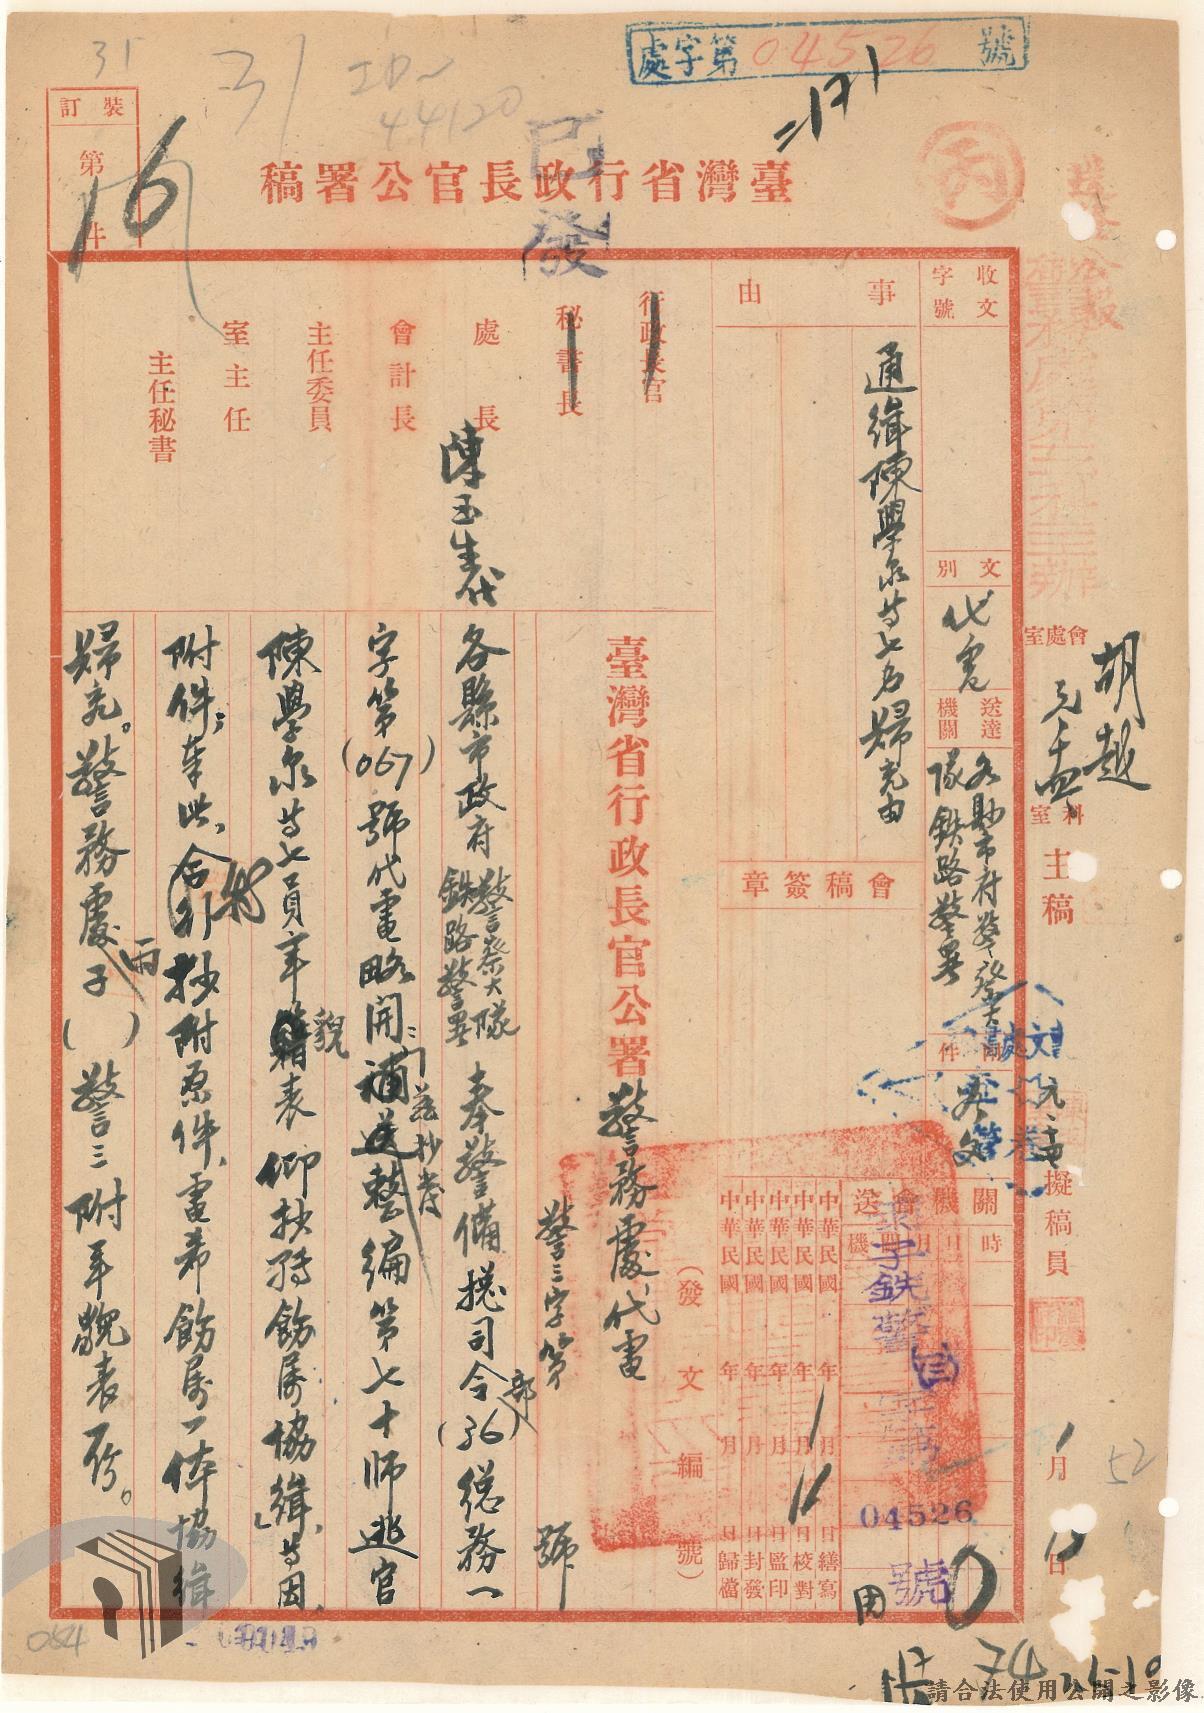 處字第04526號
31
訂裝
第 件
16
已發
臺灣省行政長官公署稿
丙
收文
字號
事由
通緝陳學泉等七名歸究由
文別
代電
送達機關
各縣市府警察大隊鉄路警署
附件
會處室
胡越
科室
主稿
擬稿員
1月
日
會稿簽章
關機會送
時
日
月
機關
中華民國 年 月 日繕寫
中華民國 年 月 日校對
中華民國 年 月 日監印
中華民國 年 月 日封發
中華民國 年 月 日歸檔
(發文編號)
04526
號
行政長官
秘書長
處長
陳玉生代
會計長
主任委員
室主任
主任秘書
臺灣省行政長官公署警務處代電
警三字第 號
各縣市政府警察大隊鉄路警署 奉警備總司令部(36)總務一
字第(067)號代電略開：「茲抄發補送整編第七十師逃官
陳學泉等七員年籍貌表仰抄轉飭屬協緝」等因，
附件；奉此，合行抄附原件，電希飭屬一体協緝
歸究。警務處子( )警三附年貌表一份。
52
064
請合法使用公開之影像